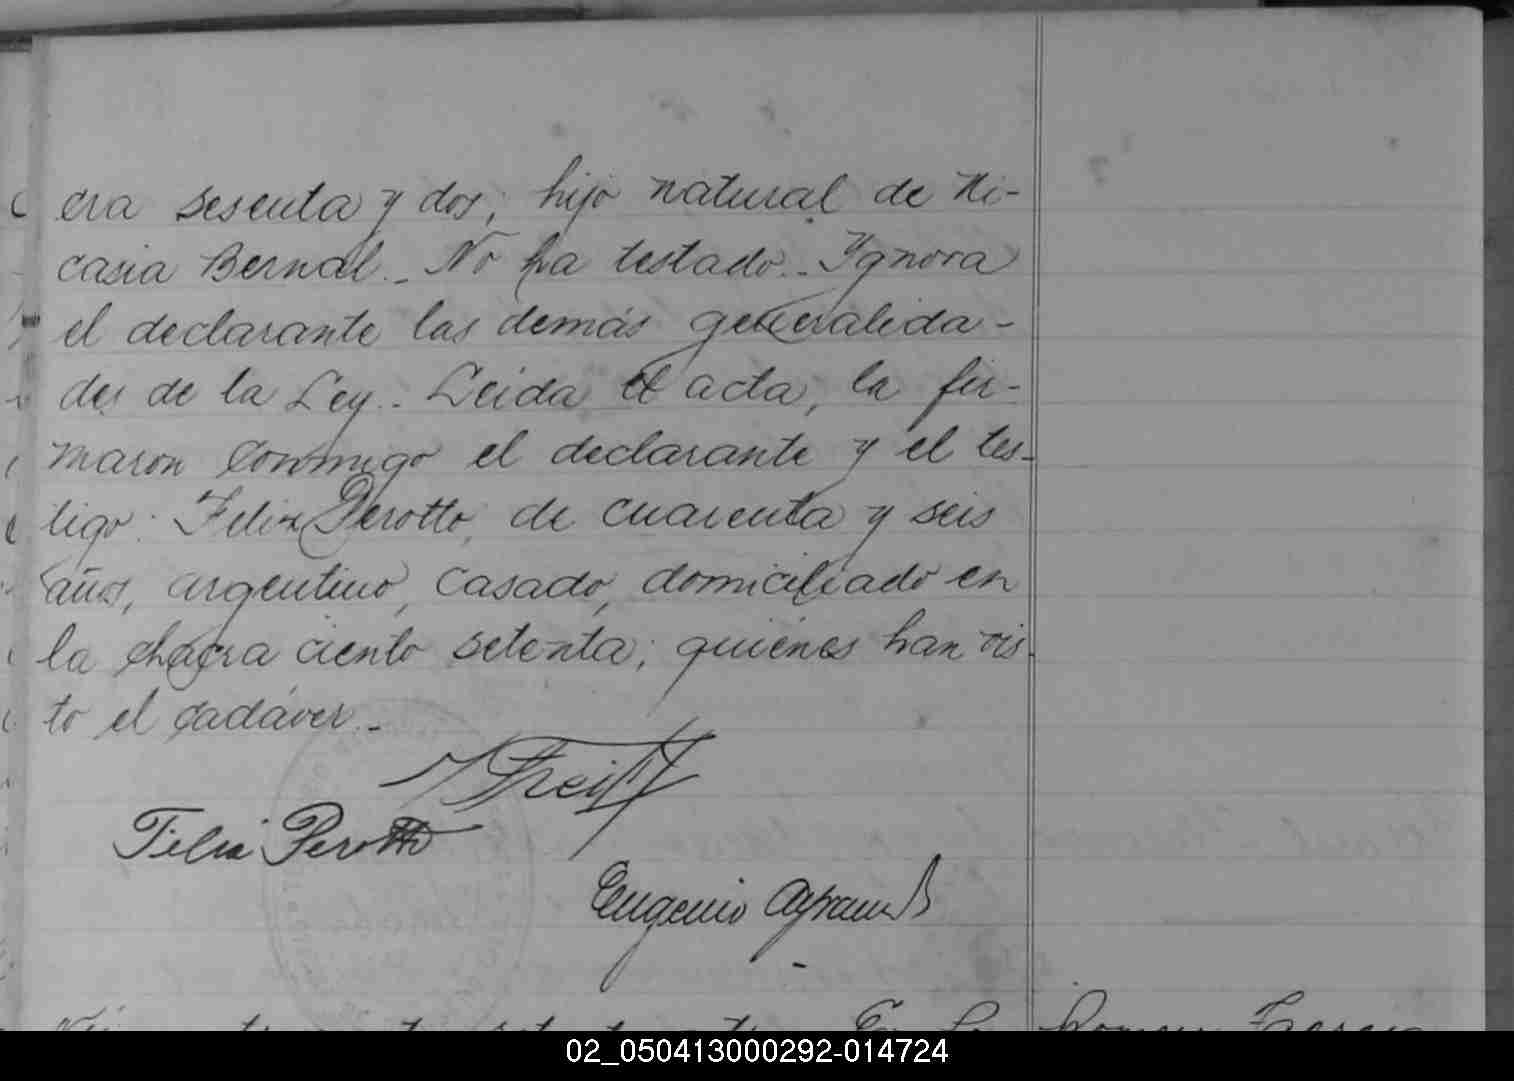 cra sesenta y dos; hijo natural de Ni-
casia Bernal._ No ha testado._ Ygnora
el declarante las demás generalida-
des de la Ley._ Leida el acta, la fir-
maron conmigo el declarante y el tes-
tigo: Felix Perotto, de cuarenta y seis
años, argentino, casado, domiciliado en
la chacra ciento setenta; quiénes han vis-
to el cadáver._
Felix Perotto
Eugenio
02_050413000292-014724